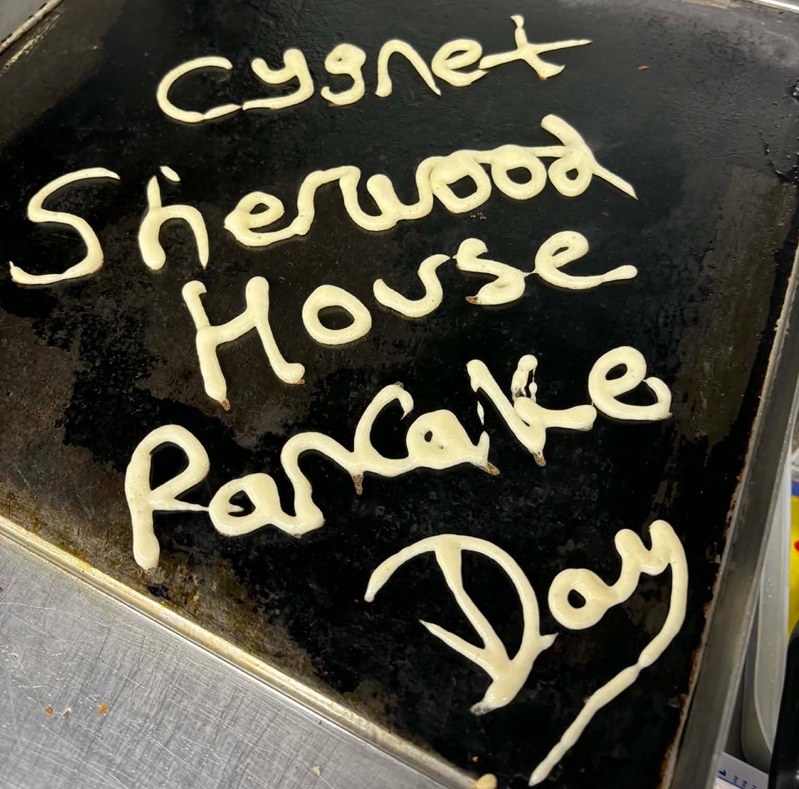 Cygnet
Sherwood
House
Pancake
Day